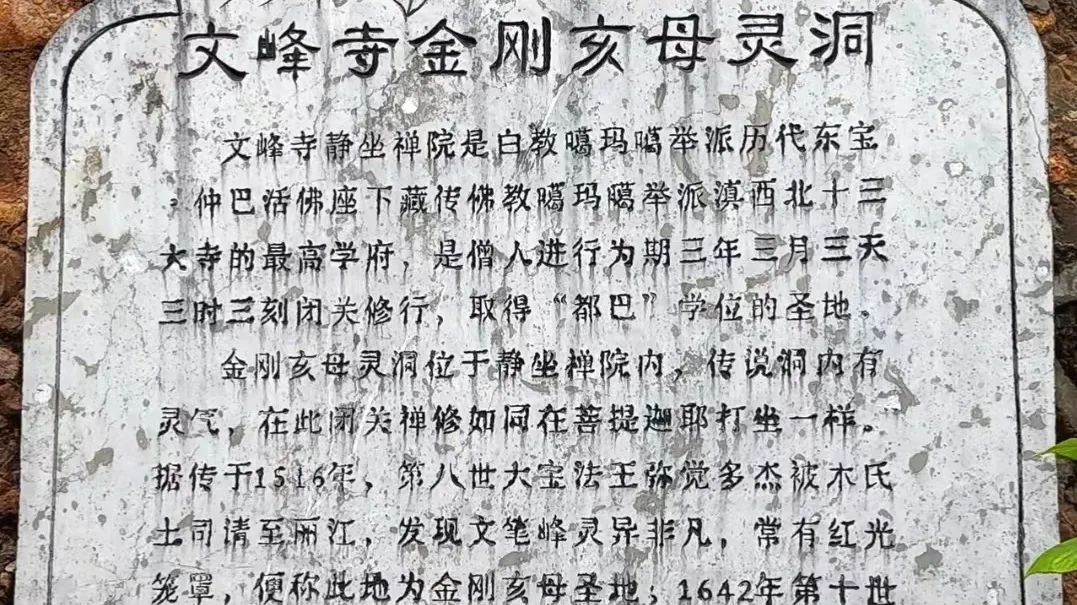 文峰寺金刚亥母灵洞
文峰寺静坐禅院是白教噶玛噶举派历代东宝
·仲巴活佛座下藏传佛教噶玛噶举派滇西北十三
大寺的最高学府，是僧人进行为期三年三月三天
三时三刻闭关修行，取得“都巴”学位的圣地。
金刚亥母灵洞位于静坐禅院内，传说洞内有
灵气，在此闭关禅修如同在菩提迦耶打坐一样。
据传于1516年，第八世大宝法王弥觉多杰被木氏
土司请至丽江，发现文笔峰灵异非凡，常有红光
笼罩，便称此地为金刚亥母圣地；1642年第十世